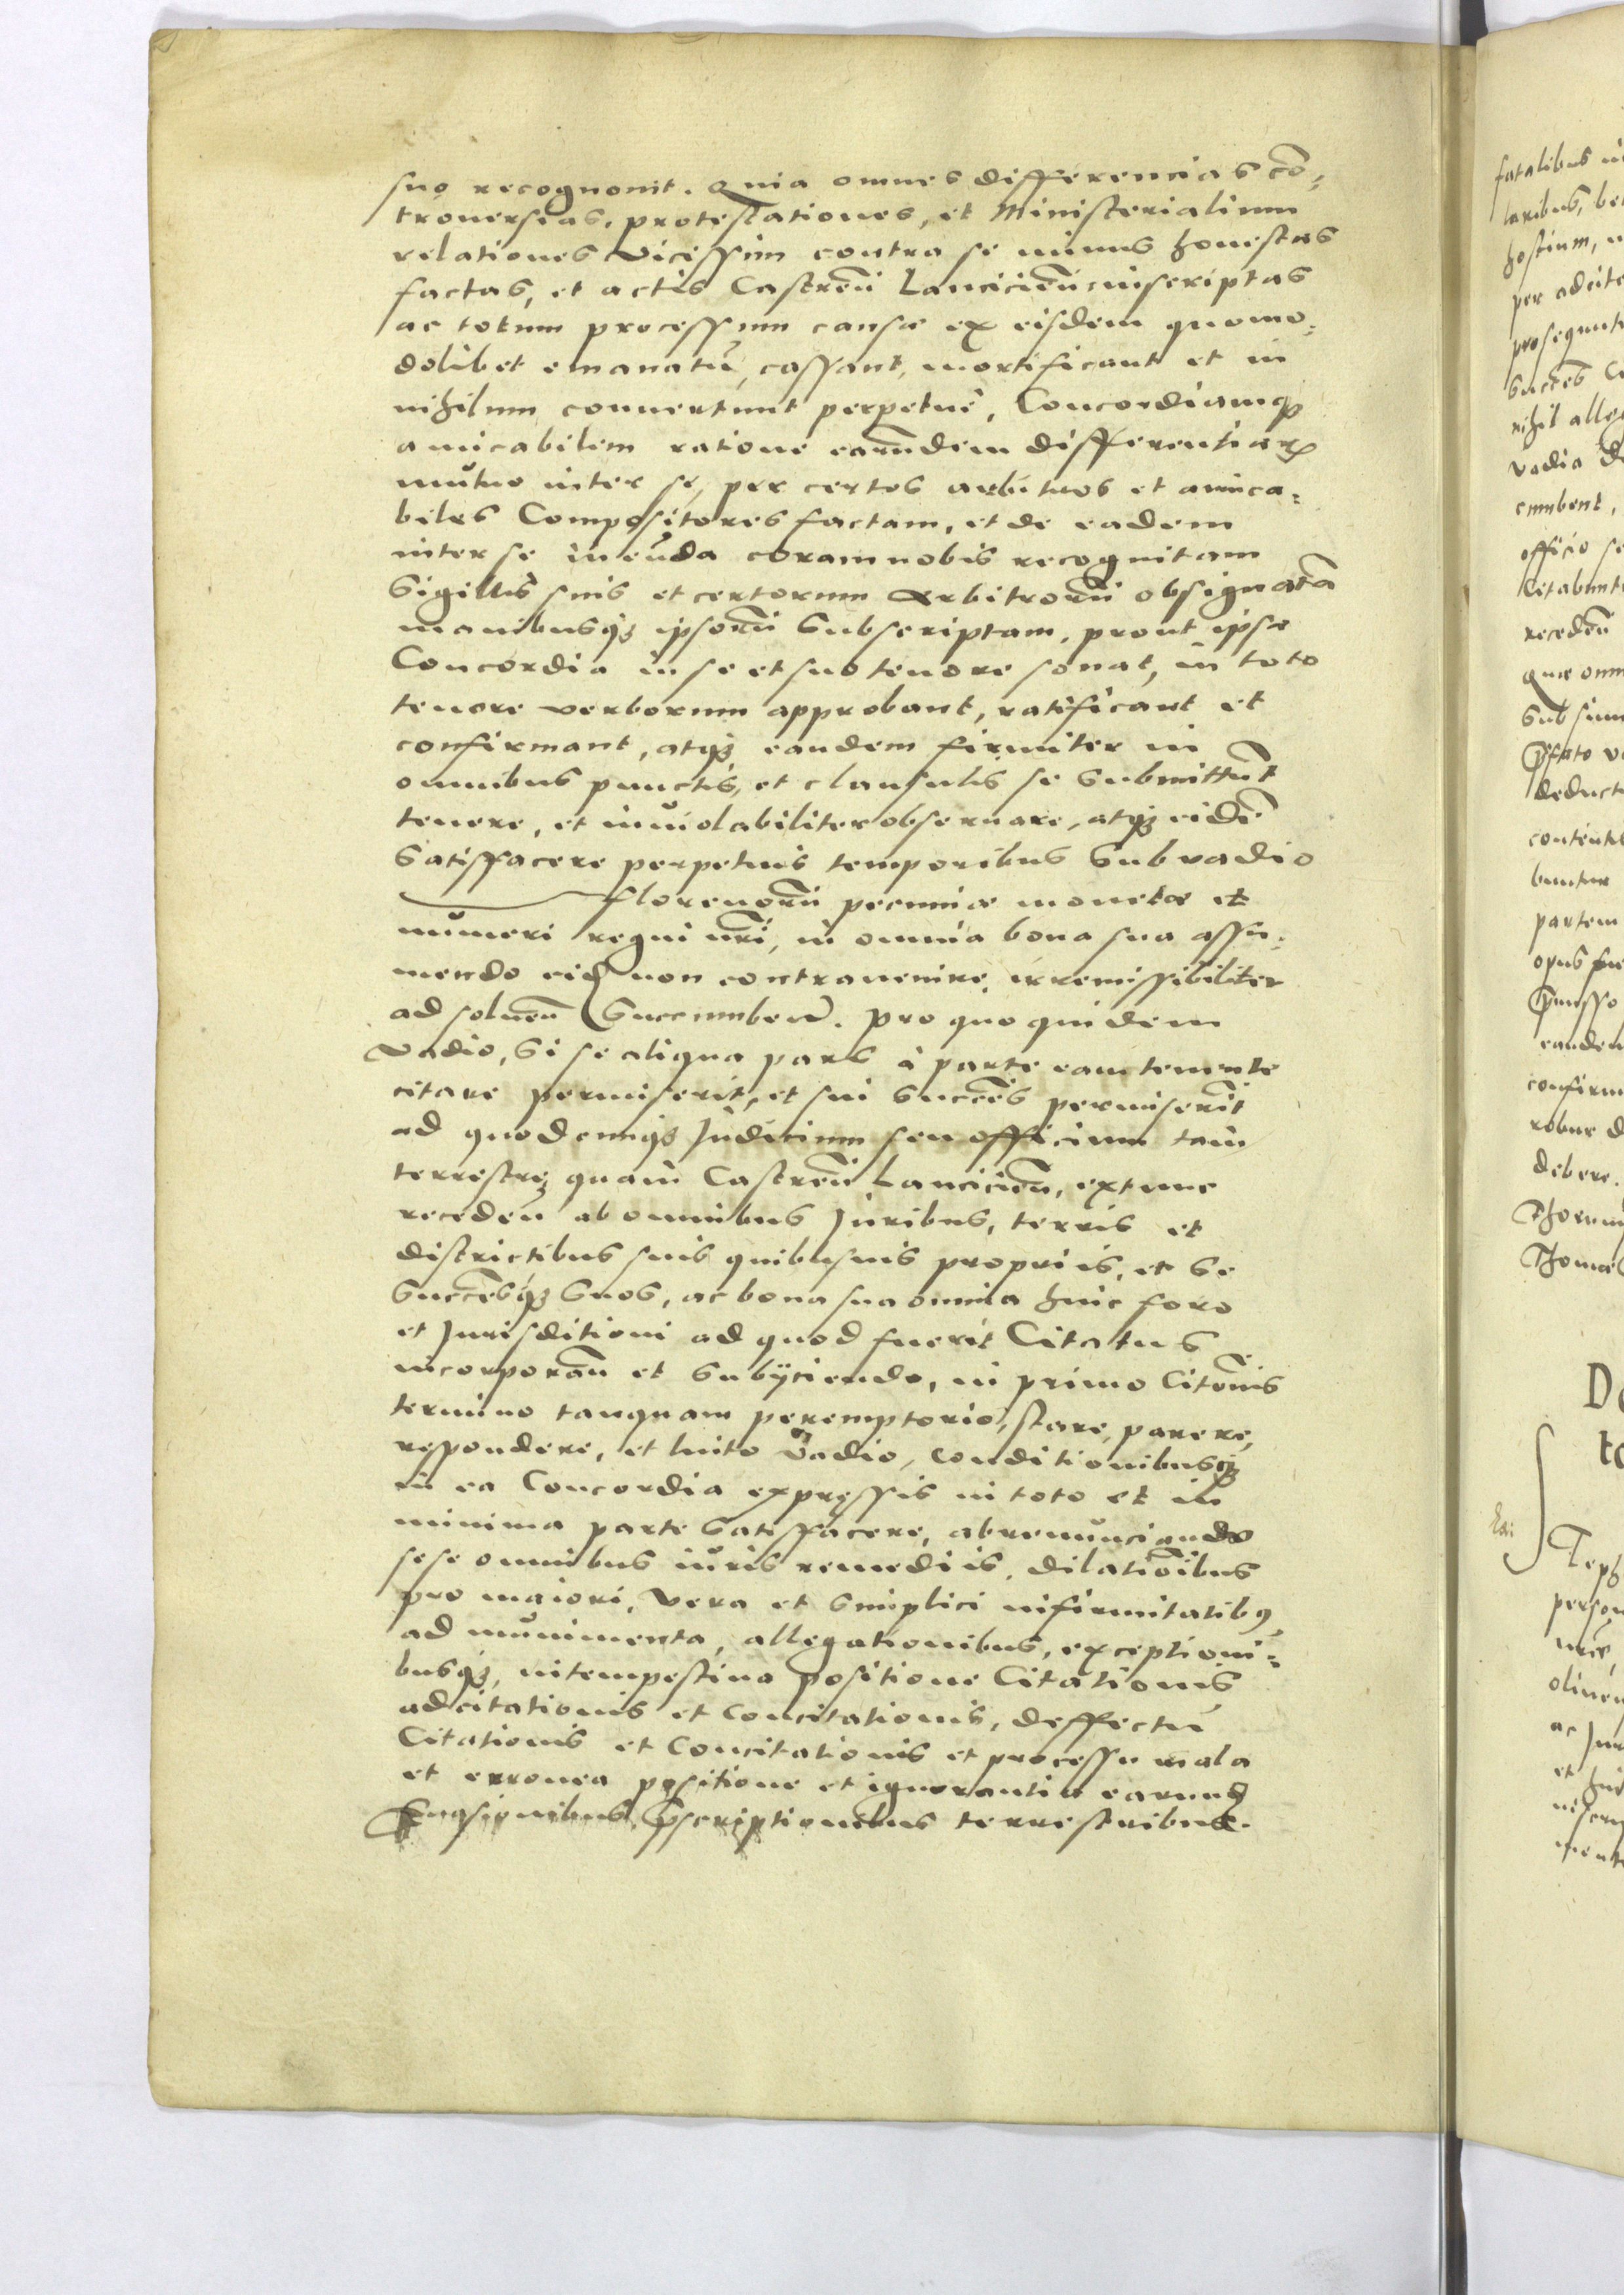 suo recognouit. Quia omnes differencias co͠¬
trouersias, protestationes, et Ministerialium
relationes vicissim contra se minus honestas
factas, et actis Castren͠ Lancicien͠ inscriptas
ac totum processum causæ ex eisdem quomo¬
dolibet emanatu͠, cassant, mortificant et in
nihilum conuertunt perpetuè, Concordiamq₃
amicabilem ratione earundem differentiarꝝ
mutuo inter se, per certos arbitros et amica¬
biles Compositores factam, et de eadem
inter se ineunda coram nobis recognitam
Sigillis suis et certorum Arbitroru͠ obsignata͠
manibusq₃ ipsoru͠ Subscriptam, prout ipsa
Concordia in se et suo tenore sonat, in toto
tenore verborum approbant, ratificant et
confirmant, atq₃ eandem firmiter in
omnibus punctis, et clausulis se submittu͠t
tenere, et inuiolabiliter obseruare, atq₃ eide͠
Satisfacere perpetuis temporibus Sub vadio
florenoru͠ pecuniæ monetæ et
numeri regni nr͠i, in omnia bona sua assu¬
mendo eid non contrauenire, irremissibiliter
ad soluen͠ Succumben͠. Pro quo quidem
Vadio, Si se aliqua pars à parte eam tenente
citare permiserit, et sui Succ͠es permiseri͠t
ad quodcunq₃ Judicium seu officium tam
terrestre quam Castren͠ Lancicien͠, extunc
receden͠ ab omnibus Juribus, terris et
districtibus suis quibusuis propriis, et Se
Succ͠esq₃ Suos, ac bona sua omnia huic foro
et Jurisditioni ad quod fuerit Citatus
incorporan͠ et Subijciendo, in primo Cito͠nis
termino tanquam peremptorio, stare, parere,
respondere, et luito vadio, Conditionibusq₃
in ea Concordia expressis in toto et in
minima parte Satisfacere, abrenunciando
sese omnibus iuris remediis, dilatio͠ibus
pro maiori, vera et Simplici infirmitatibꝰ
ad munimenta, allegationibus, exceptioni¬
busq₃, intempestiua positione Citationis
adcitationis et Concitationis, deffectu
Citationis et Concitationis et processu mala
et erronea positione et ignorantia earund
Euasionibus, p͠scriptionibus terrestribus.
fatalibus
hostium,
per adcita
prosequut
nihil alle
vadia
cumbent,
officio se
Citabunt
receden͠
Quæ om
deduct
content
buntur
partem
opus fue
p͠misso
eandem
confirm
robur d
debere.
Thomas